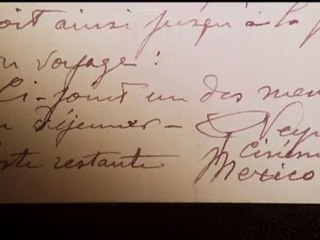 oit ainsi jusqu'à la f
on voyage :
Ci-joint un des men
n déjeuner — Veyr
ste restante Cinéma
Mexico